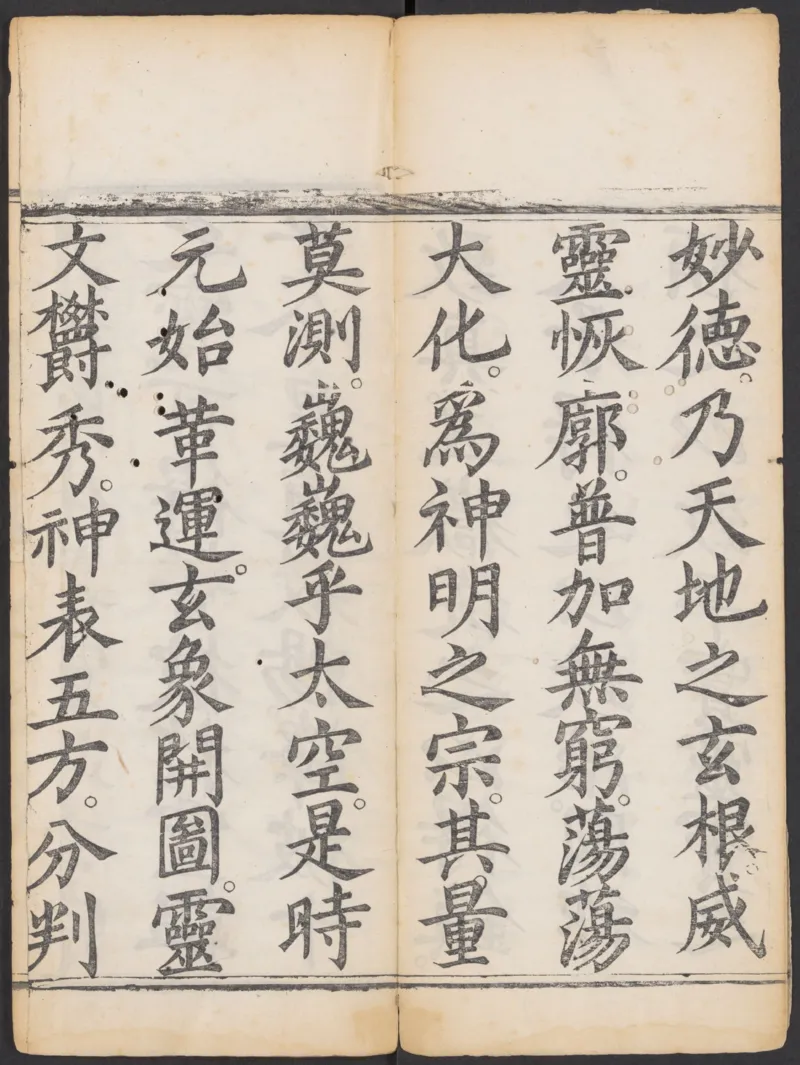 妙德。乃天地之玄根。威
靈恢廓。普加無窮。蕩蕩
大化。為神明之宗。其量
莫測。巍巍乎太空。是時
元始革運。玄象開圖。靈
文欝秀。神表五方。分判